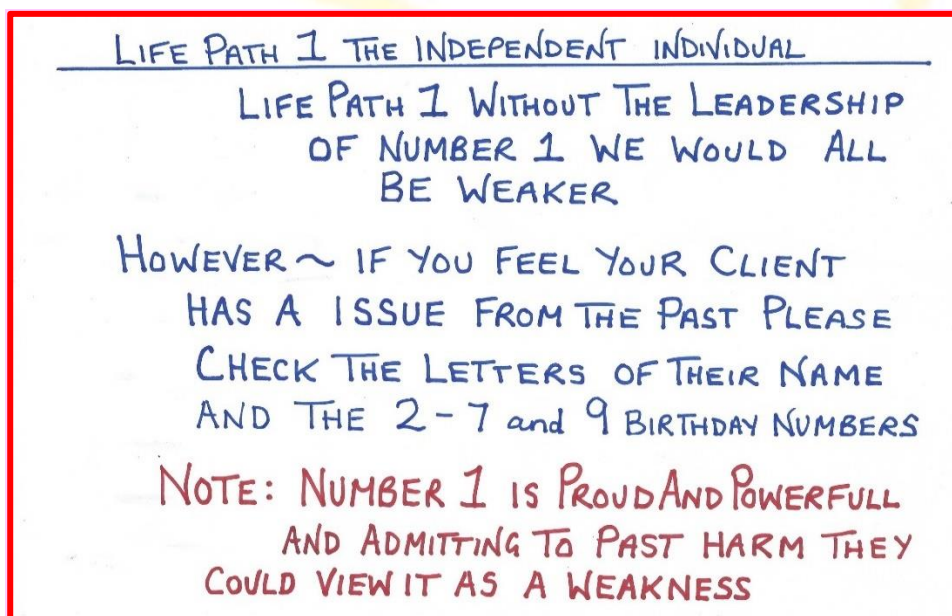 LIFE PATH 1 THE INDEPENDENT INDIVIDUAL
LIFE PATH 1 WITHOUT THE LEADERSHIP
OF NUMBER 1 WE WOULD ALL
BE WEAKER
HOWEVER ~ IF YOU FEEL YOUR CLIENT
HAS A ISSUE FROM THE PAST PLEASE
CHECK THE LETTERS OF THEIR NAME
AND THE 2-7 and 9 BIRTHDAY NUMBERS
NOTE: NUMBER 1 IS PROUD AND POWERFULL
AND ADMITTING TO PAST HARM THEY
COULD VIEW IT AS A WEAKNESS